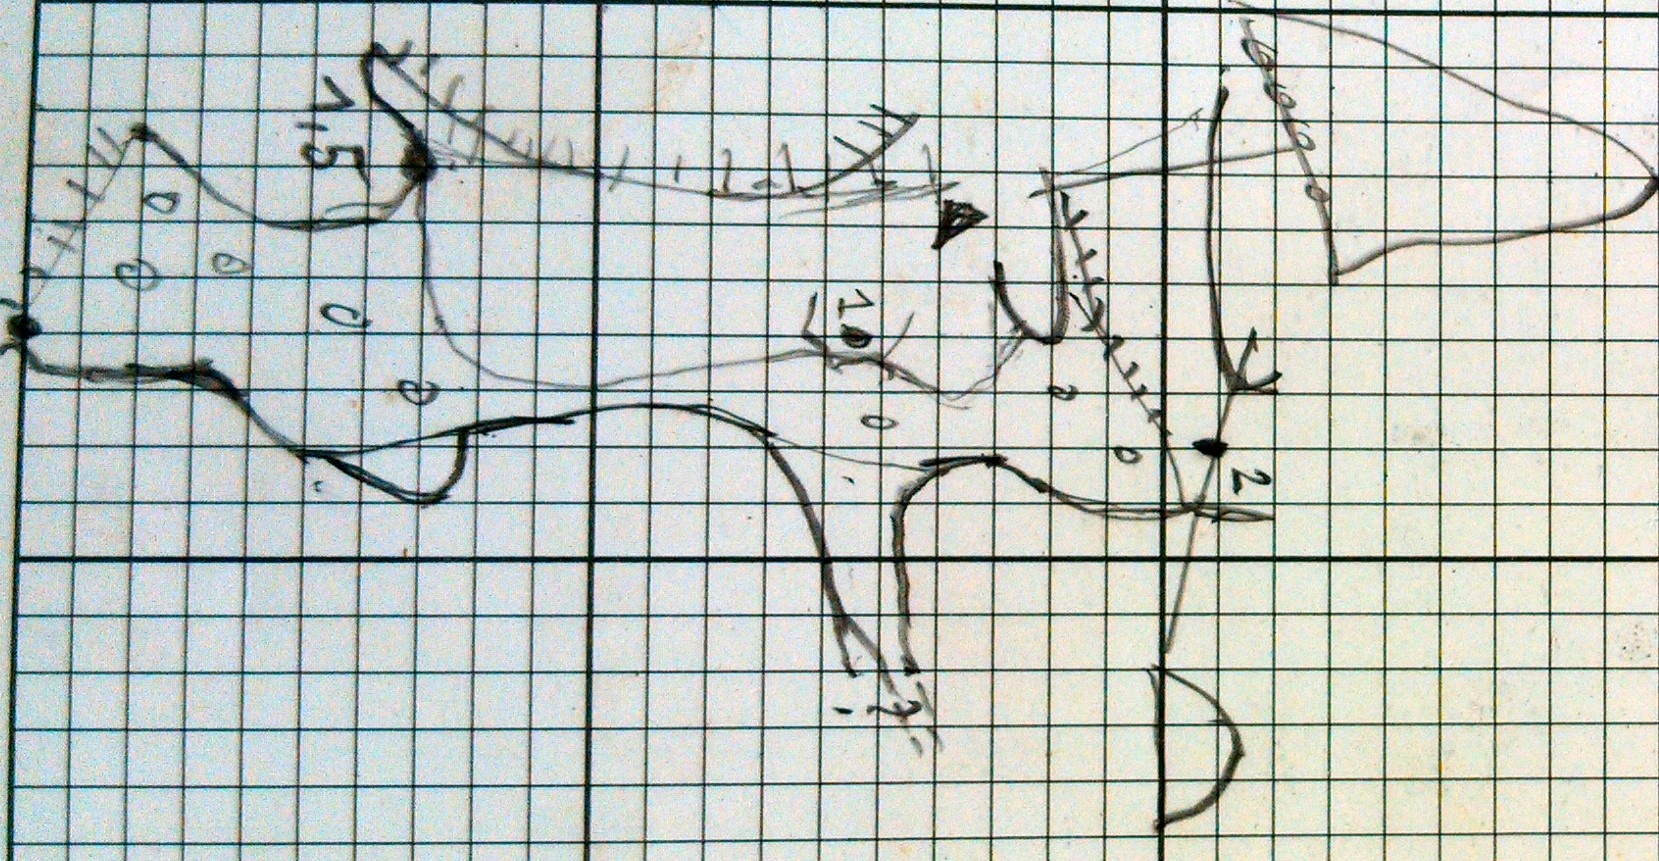 1,5
10
2
?